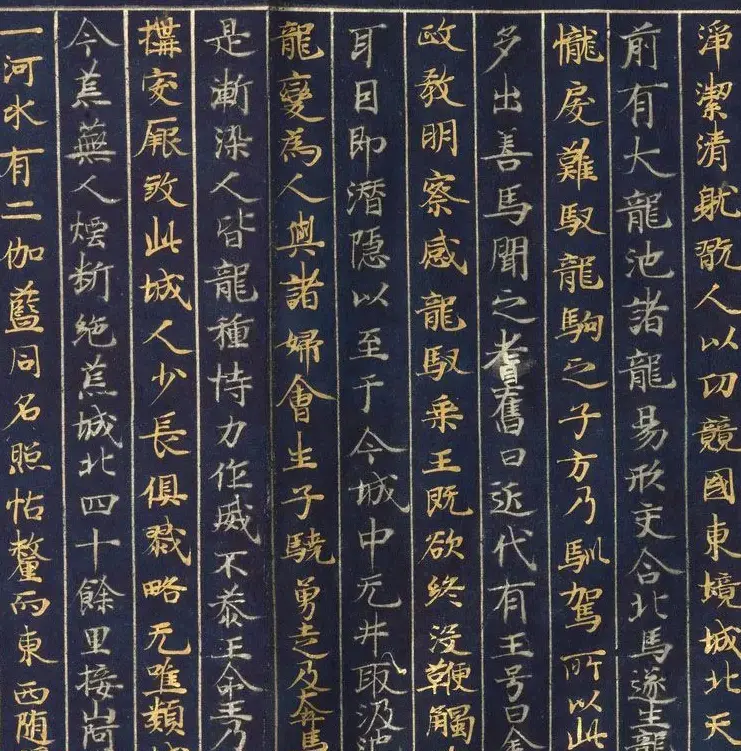 淨潔清躭翫人以功競國東境城北天
前有大龍池諸龍易形交合北馬遂生龍
㦨戾難馭龍駒之子方乃馴駕所以此
多出善馬聞之耆舊曰近代有王号曰金
政教明察感龍馭乘王既欲終沒鞭觸
耳目即潛隱以至于今城中无井取汲池
龍變為人與諸婦會生子驍勇走及奔馬
是漸染人皆龍種恃力作威不恭王命王乃
搆突厥致此城人少長俱戮略无噍類城
今荒蕪人煙斷絕荒城北四十餘里接山
一河水有二伽藍同名照怙釐而東西随